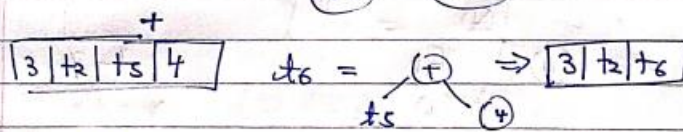 +
3 | t2 | t5 | 4   t6 = +   ⇒   3 | t2 | t6
t5   4